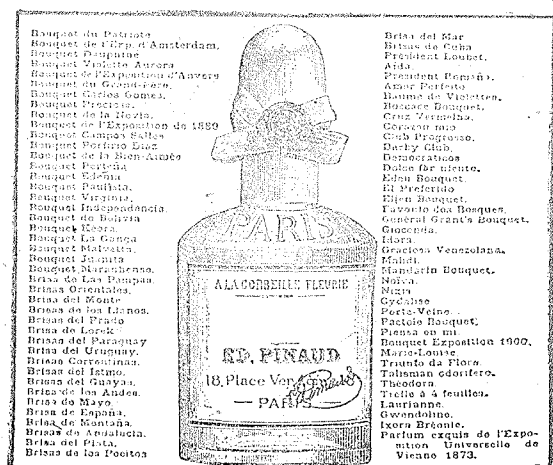 Bouquet du Patriote
Bouquet de l'Exp. d'Amsterdam.
Bouquet Dauphine
Bouquet Violette Aurora
Bouquet de l'Exposition d'Anvers
Bouquet du Grand-Père.
Bouquet Carlos Gomes.
Bouquet Preciosa.
Bouquet de la Novia.
Bouquet de l'Exposition de 1889
Bouquet Campos Salles
Bouquet Porfirio Diaz
Bouquet de la Bien-Aimée
Bouquet Porteña
Bouquet Edenia
Bouquet Paulista.
Bouquet Virginia.
Bouquet Independencia.
Bouquet de Bolivia
Bouquet
Bouquet La Gonga
Bouquet
Bouquet Juanita
Bouquet Maranhense.
Brisa de Las Pampas.
Brisas Orientales.
Brisa del Monte
Brisas de los Llanos.
Brisas del Prado
Brisa de Lorek
Brisas del Paraguay
Brisa del Uruguay.
Brisas Correntinas.
Brisas del Istmo.
Brisas del Guayas.
Brisa de los Andes.
Brisa de Mayo.
Brisa de España.
Brisa de Montaña.
Brisas de Andalucia.
Brisa del Plata.
Brisas de los Pocitos
PARIS
A LA CORBEILLE FLEURIE
ED. PINAUD
18, Place Vendôme
PARIS
Brisa del Mar
Brisas de Cuba
Président Loubet.
Aida.
President Romaña.
Amor Perfeito
Baume de Violettes.
Boccace Bouquet.
Cruz Vermelha.
Corazon mio
Club Progresso.
Darby Club.
Democraticos
Dolce far niente.
Eden Bouquet.
El Preferido
Eljen Bouquet.
Favorito dos Bosques.
General Grant's Bouquet.
Gioconda.
Idora.
Graciosa Venezolana.
Mahdi.
Mandarin Bouquet.
Noiva.
Nizia
Cydalise
Porte-Veine.
Pactole Bouquet.
Piensa en mi.
Bouquet Exposition 1900.
Marie-Louise.
Triunfo da Flora.
Talisman odorifero.
Theodora.
Trèfle à 4 feuilles.
Laurianne.
Gwendoline.
Ixora Bréonie.
Parfum exquis de l'Expo-
sition Universelle de
Vienne 1873.